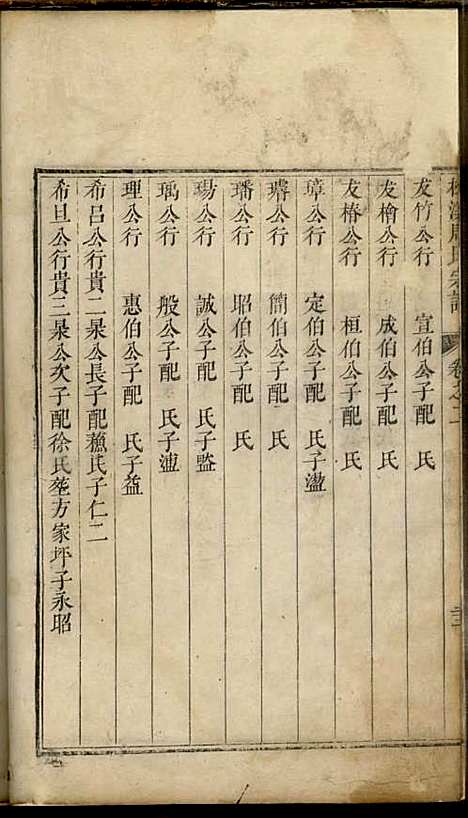 周氏宗譜 卷之二
友竹公行 宣伯公子配 氏
友檜公行 成伯公子配 氏
友椿公行 桓伯公子配 氏
璋公行 定伯公子配 氏子
公行 簡伯公子配 氏
璠公行 昭伯公子配 氏
瑒公行 誠公子配 氏子
瑀公行 般公子配 氏子
理公行 惠伯公子配 氏子益
希呂公行貴二杲公長子配 氏子仁二
希旦公行貴三杲公次子配徐氏葬方家坪子永昭